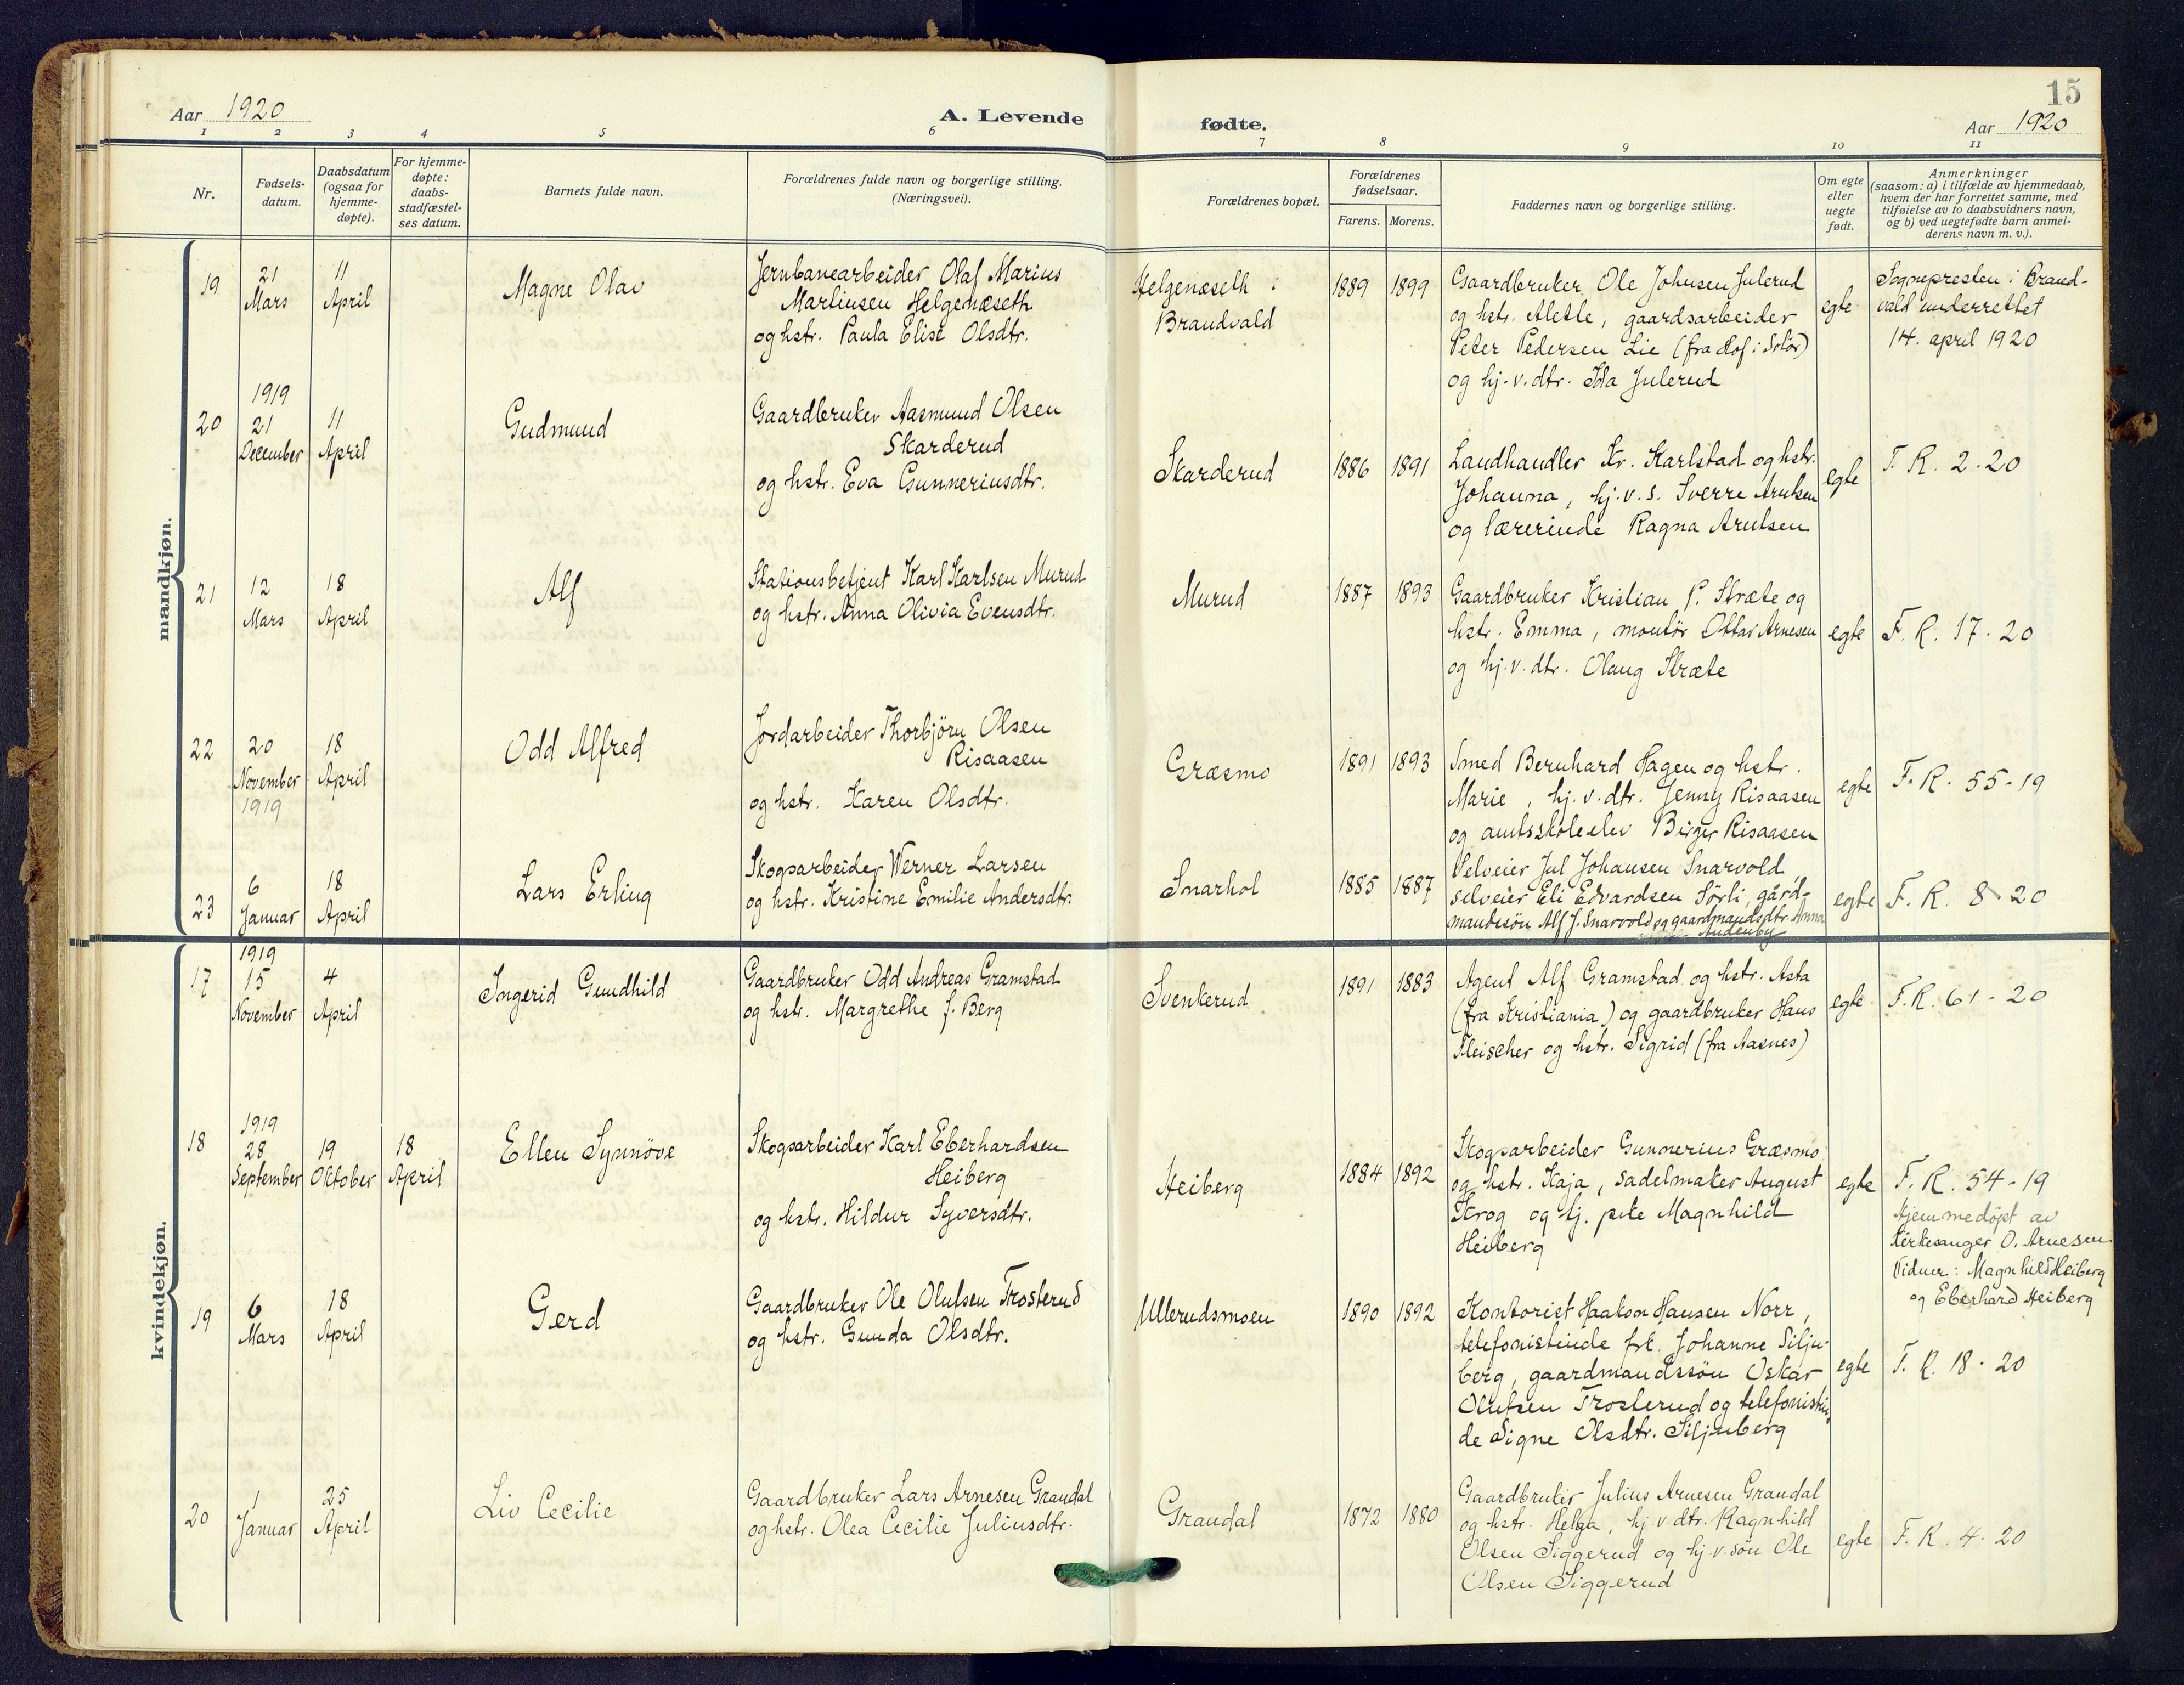 15
Aar 1920
A. Levende
fødte.
Aar 1920
1 2 3 4 5 6 7 8 9 10 11
Nr.
Fødsels-
datum.
Daabsdatum
(ogsaa for
hjemme-
døpte).
For hjemme-
døpte:
daabs-
stadfæstel-
ses datum.
Barnets fulde navn.
Forældrenes fulde navn og borgerlige stilling.
(Næringsvei).
Forældrenes bopæl.
Forældrenes
fødselsaar.
Farens. Morens.
Faddernes navn og borgerlige stilling.
Om egte
eller
uegte
født.
Anmerkninger
(saasom: a) i tilfælde av hjemmedaab,
hvem der har forrettet samme, med
tilføielse av to daabsvidners navn,
og b) ved uegtefødte barn anmel-
derens navn m. v.).
mandkjøn.
19
21
Mars
11
April
Magne Olav
Jernbanearbeider Olaf Marius
Martinsen Helgenæseth
og hstr. Paula Elise Olsdtr.
Helgenæseth i
Brandvald
1889
1899
Gaardbruker Ole Johnsen Julerud
og hstr. Alette, gaardsarbeider
Peter Pedersen Lie (fra Hof i Solør)
og hj.v.dtr. Ida Julerud
egte
Sognepresten i Brand-
vald underrettet
14. april 1920
20
1919
21
December
11
April
Gudmund
Gaardbruker Aasmund Olsen
Skarderud
og hstr. Eva Gunneriusdtr.
Skarderud
1886
1891
Landhandler Kr. Karlstad og hstr.
Johanna, hj.v.s. Sverre Arntsen
og lærerinde Ragna Arntsen
egte
F. R. 2-20
21
12
Mars
18
April
Alf
Stationsbetjent Karl Karlsen Murud
og hstr. Anna Olivia Evensdtr.
Murud
1887
1893
Gaardbruker Kristian P. Stræte og
hstr. Emma, montør Ottar Arnesen
og hj.v.dtr. Olaug Stræte
egte
F. R. 17-20
22
20
November
1919
18
April
Odd Alfred
Jordarbeider Thorbjörn Olsen
Risaasen
og hstr. Karen Olsdtr.
Græsmo
1891
1893
Smed Bernhard Hagen og hstr.
Marie, hj.v.dtr. Jenny Risaasen
og amtsskoleelev Birger Risaasen
egte
F. R. 55-19
23
6
Januar
18
April
Lars Erling
Skogsarbeider Werner Larsen
og hstr. Kristine Emilie Andersdtr.
Snarhol
1885
1887
Selveier Jul Johansen Snarvold
selveier Eli Edvardsen Sørli, gård-
mandssøn Alf J. Snarvold og gaardmandsdtr. Anna
Audenby
egte
F. R. 8-20
kvindekjøn.
17
1919
15
November
4
April
Ingerid Gundhild
Gaardbruker Odd Andreas Gramstad
og hstr. Margrethe f. Berg
Svenkerud
1891
1883
Agent Alf Gramstad og hstr. Asta
(fra Kristiania) og gaardbruker Hans
Fleischer og hstr. Sigrid (fra Aasnes)
egte
F. R. 61-20
18
1919
28
September
19
Oktober
18
April
Ellen Synnöve
Skogsarbeider Karl Eberhardsen
Heiberg
og hstr. Hildur Syversdtr.
Heiberg
1884
1892
Skogsarbeider Gunnerius Græsmo
og hstr. Kaja, sadelmaker August
Krog og hj. pike Magnhild
Heiberg
egte
F. R. 54-19
Hjemmedøpt av
Kirkesanger O. Arnesen
Vidner: Magnhild Heiberg
og Eberhard Heiberg
19
6
Mars
18
April
Gerd
Gaardbruker Ole Olufsen Trosterud
og hstr. Gunda Olsdtr.
Ullerudsmoen
1890
1892
Kontorist Haakon Hansen Norr,
telefonistinde frk. Johanne Silju-
berg, gaardmandssøn Oskar
Olufsen Trosterud og telefonistin-
de Signe Olsdtr. Siljuberg
egte
F. R. 18-20
20
1
Januar
25
April
Liv Cecilie
Gaardbruker Lars Arnesen Grandal
og hstr. Olea Cecilie Juliusdtr.
Grandal
1872
1880
Gaardbruker Julius Arnesen Grandal
og hstr. Helga, hj.v.dtr. Ragnhild
Olsen Siggerud og hj.v.søn Ole
Olsen Siggerud
egte
F. R. 4-20